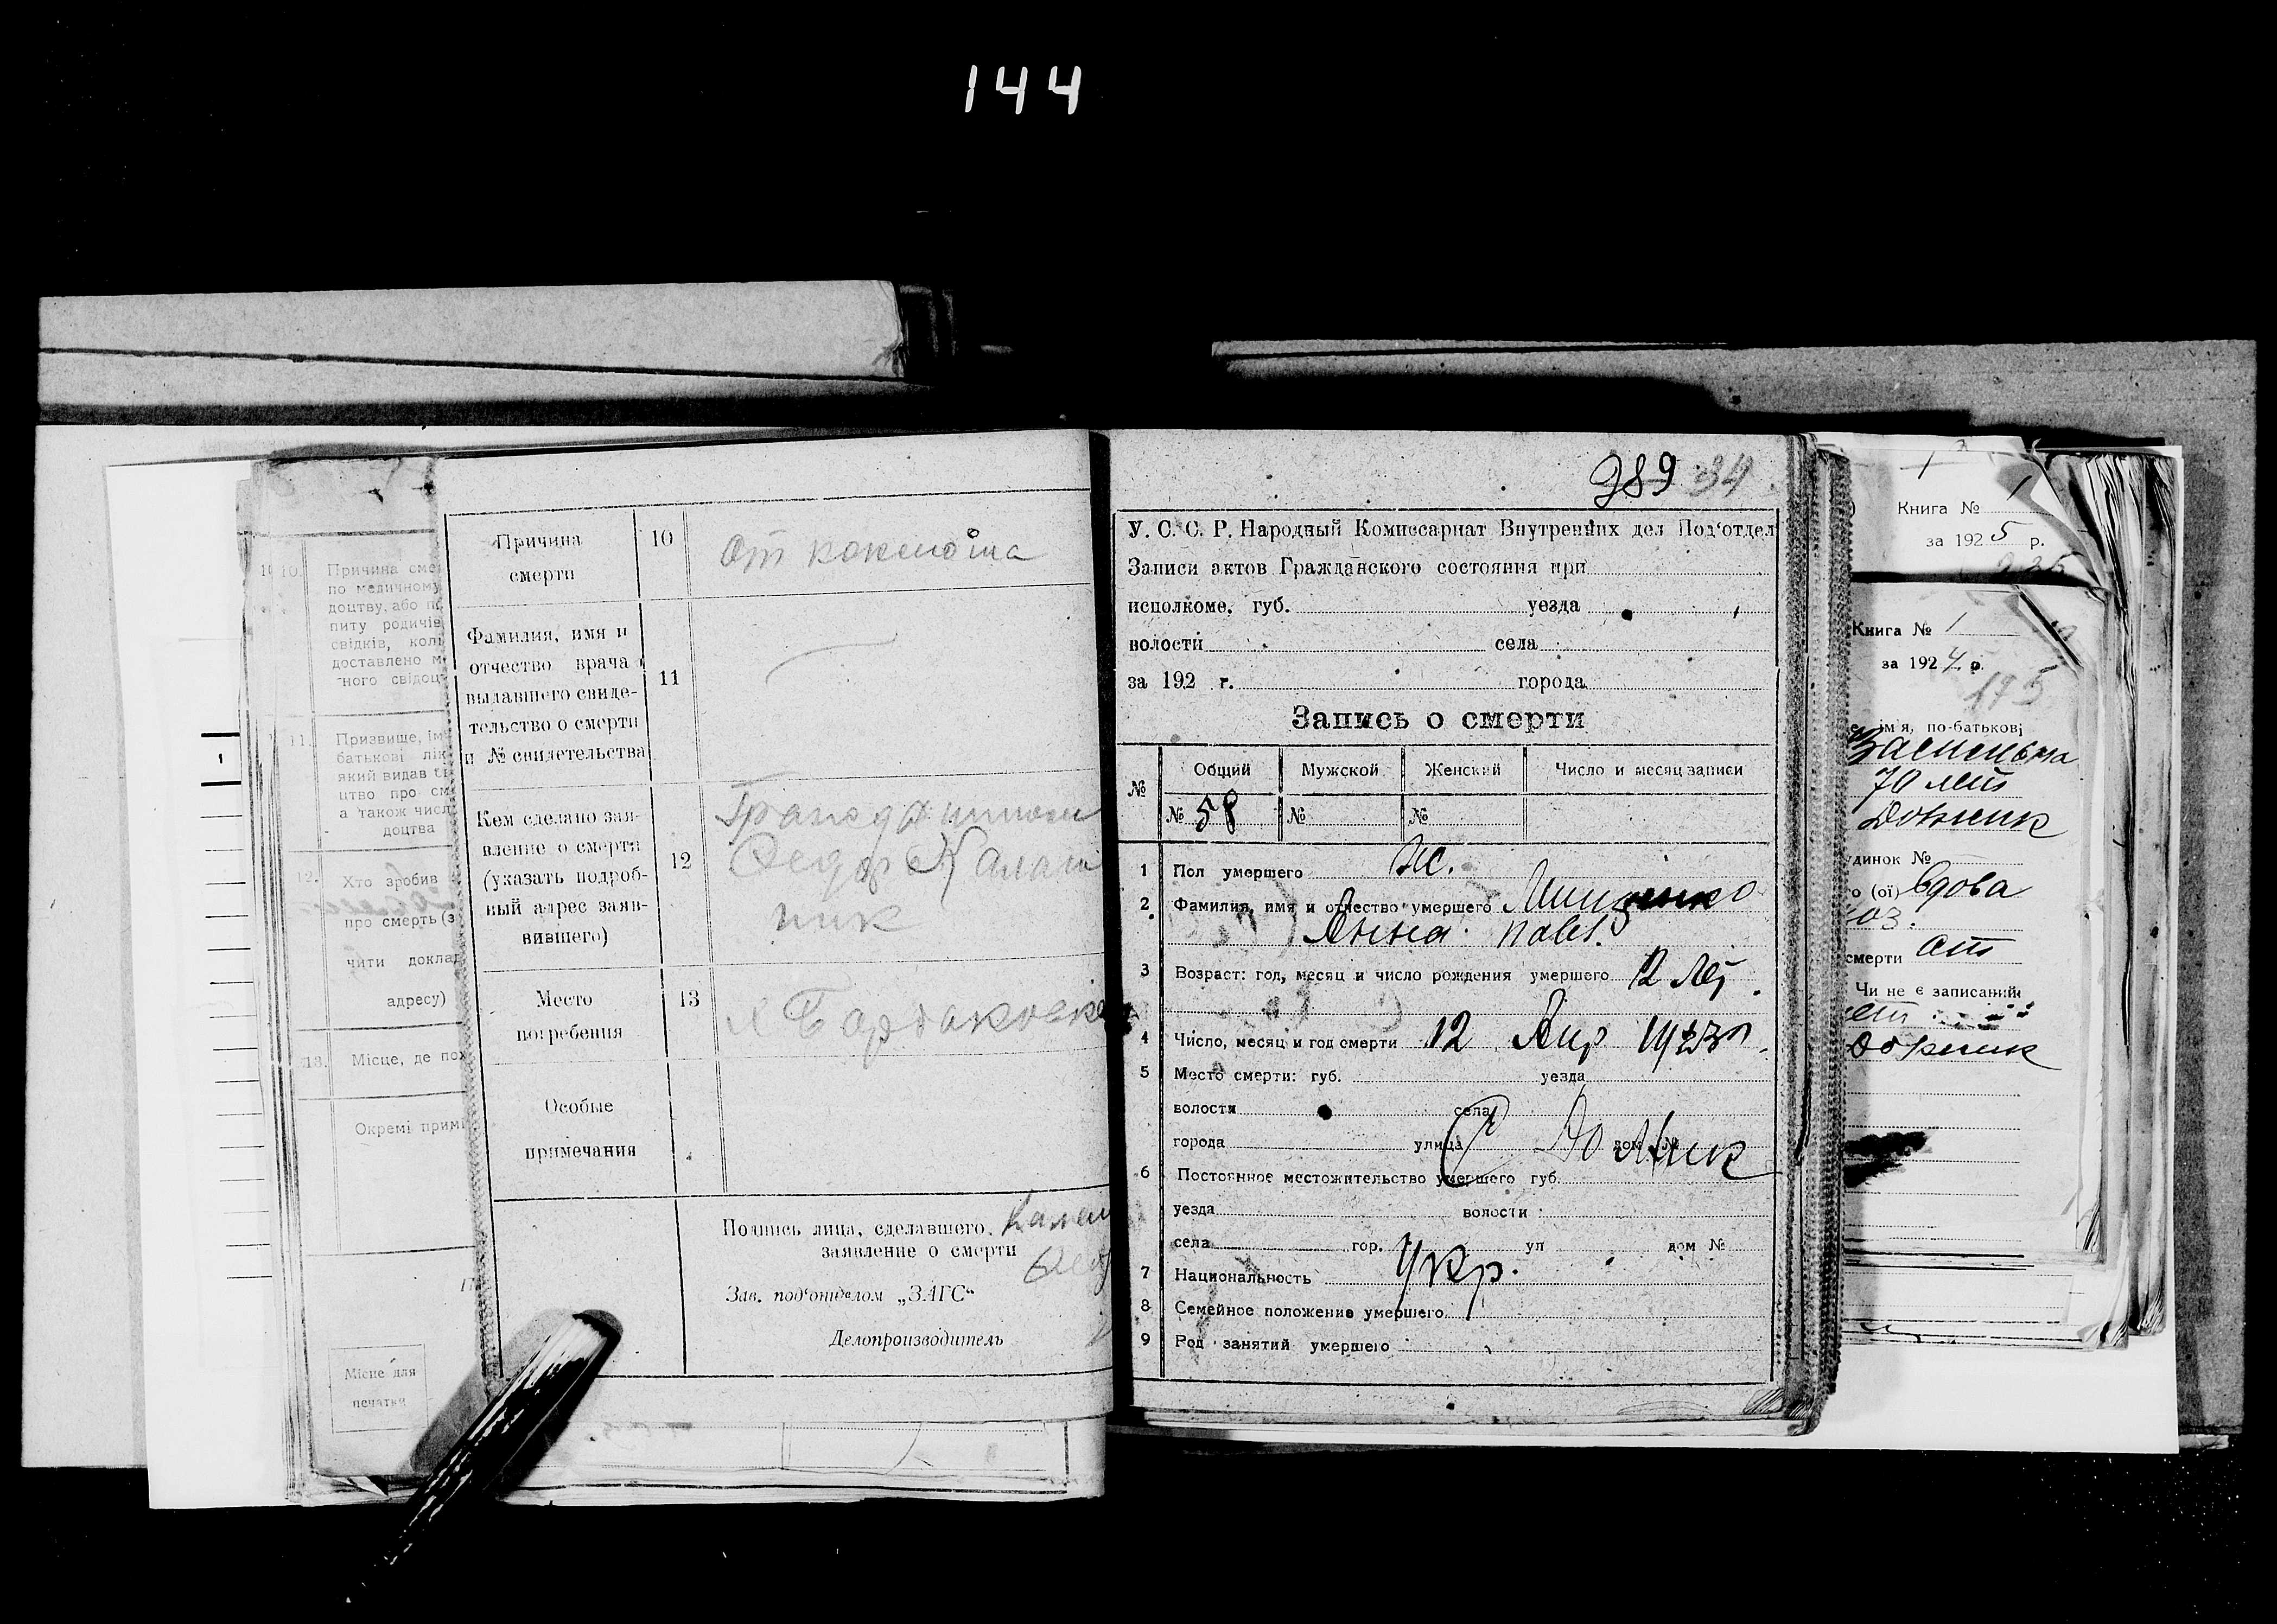 144
Причина смерти
10
от коклюша
Фамилия, имя и
отчество врача
выдавшего свиде-
тельство о смерти
и № свидетельства
11
Кем сделано зая-
вление о смерти
(указать подроб-
ный адрес заяв-
вившего)
12
Федор
ник
Место
погребения
13
Особые
примечания
Подпись лица, сделавшего
заявление о смерти
Зав. под'отделом „ЗАГС“
Делопроизводитель
10.
Причина сме
по медичному
доцтву, або п
питу родичів
свідків, коли
доставлено м
ного свідоц
11.
Призвище, ім
батькові лік
який видав
цтво про см
а також числ
доцтва
12.
Хто зробив
про смерть (з
чити доклад
адресу)
13.
Місце, де пох
Окремі примі
Місце для
печатки
1
389 34
У. С. С. Р. Народный Комиссариат Внутренних дел Под'отдел
Записи актов Гражданского состояния при
исполкоме, губ. уезда
волости села
за 192 г. города
Запись о смерти
№ Общий Мужской Женский Число и месяц записи
№ 58 № №
1 Пол умершего Ж.
2 Фамилия, имя и отчество умершего
Анна Павл.
3 Возраст: год, месяц и число рождения умершего 12 лет
4 Число, месяц и год смерти 12 Апр 1923 г.
5 Место смерти: губ. уезда
волости села
города улица дом №
6 Постоянное местожительство умершего губ.
уезда волости
села гор. ул дом №
7 Национальность Укр.
8 Семейное положение умершего
9 Род занятий умершего
Книга № 1
за 1925 р.
Книга № 1
за 1924 р.
175
ім'я, по-батькові
70 лет
динок №
о (ої) вдова
смерти от
Чи не є записаний